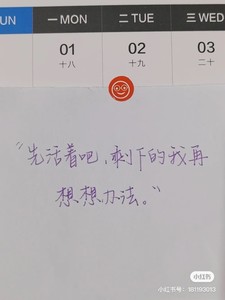 UN
一 MON
二 TUE
三 WED
01
02
03
十八
十九
二十
"先活着吧，剩下的我再
想想办法。"
小红书